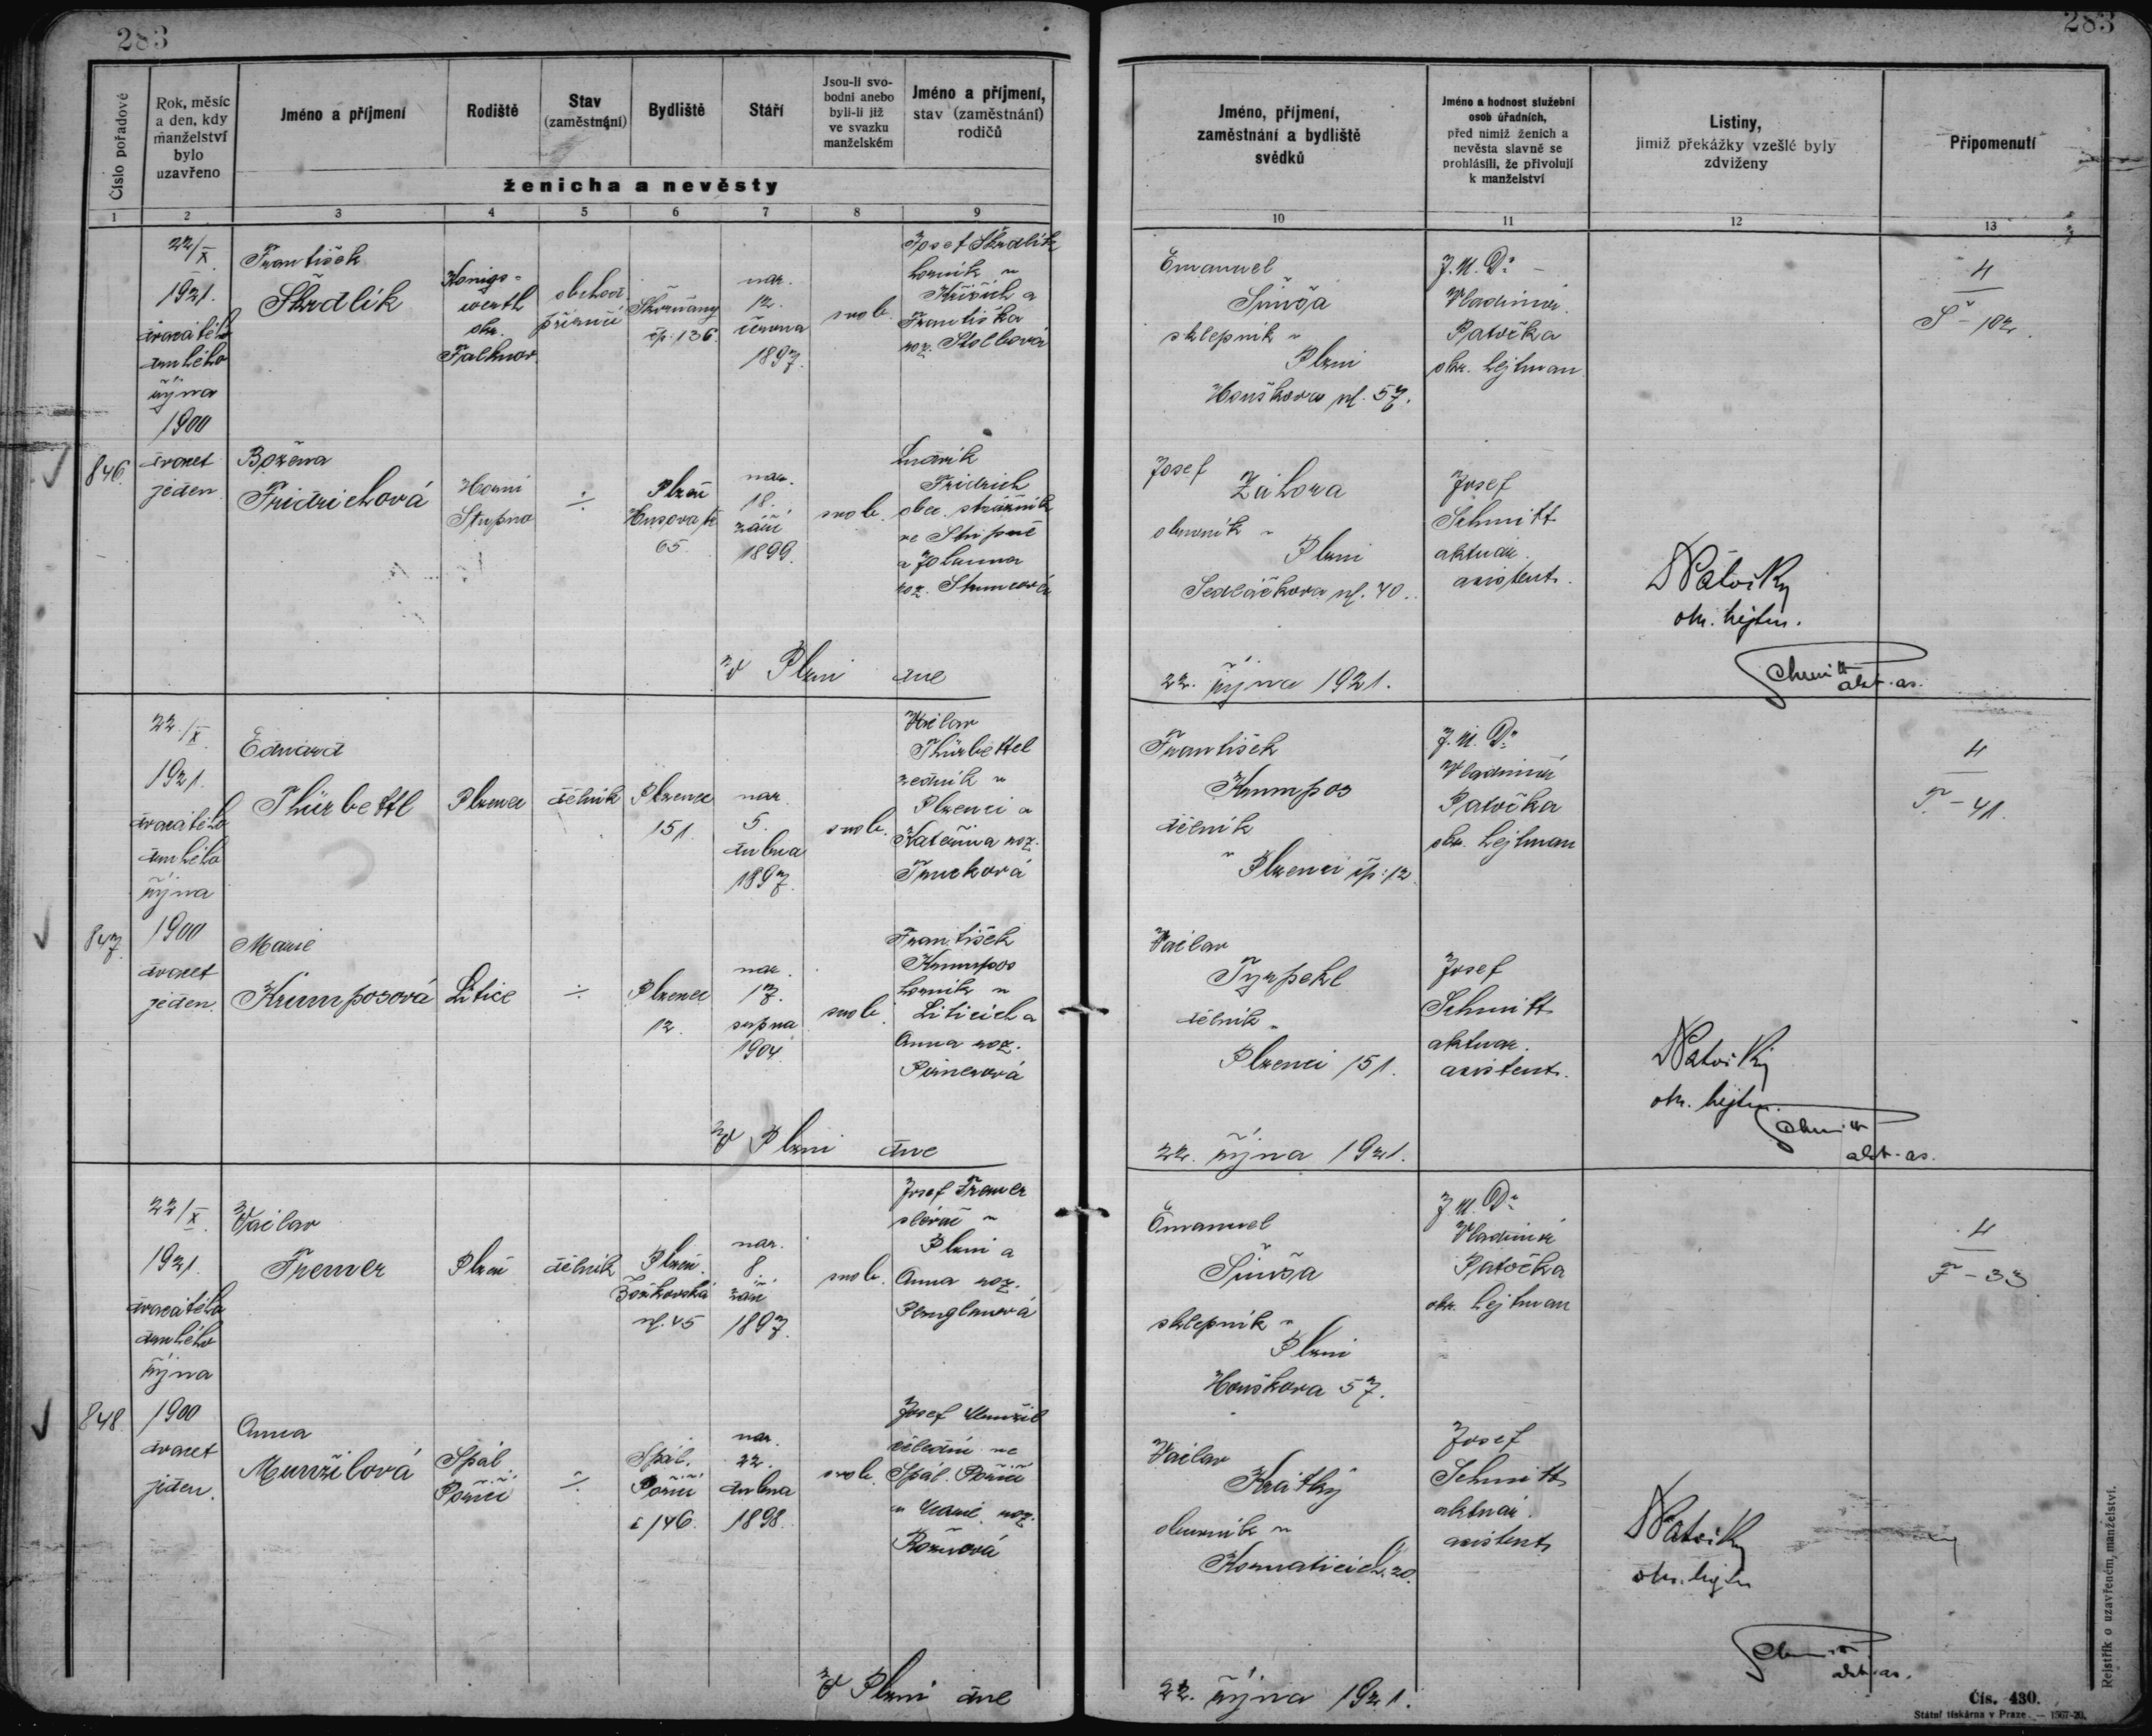 283
283
Číslo pořadové
Rok, měsíc a den, kdy manželství bylo uzavřeno
Jméno a příjmení
Rodiště
Stav (zaměstnání)
Bydliště
Stáří
Jsou-li svobodni anebo byli-li již ve svazku manželském
Jméno a příjmení, stav (zaměstnání) rodičů
ženicha a nevěsty
Jméno, příjmení, zaměstnání a bydliště svědků
Jméno a hodnost služební osob úřadních, před nimiž ženich a nevěsta slavně se prohlásili, že přivolují k manželství
Listiny, jimiž překážky vzešlé byly zdviženy
Připomenutí
1 2 3 4 5 6 7 8 9 10 11 12 13
846.
22/X
1921.
dvacátého
druhého
října
1900
dvacet
jeden
František
Škrdlík
Königs-
werth
okr.
Falknov.
obchod.
příručí
Skvrňany
čp. 136.
nar.
12.
června
1897.
svob.
Josef Škrdlík
horník v
a
Františka
roz.
Božena
Fridrichová
Horní
Stupno
÷
Plzeň
Husova tř.
65.
nar.
18.
září
1899.
svob.
Ludvík
Fridrich
obec. strážník
ve Stupně
a Johanna
roz.
Emanuel
Šimša
sklepník v
Plzni
Houškova ul. 57.
J.U.Dr.
Vladimír
Patočka
okr. hejtman
4
Š - 102.
Josef
Záhora
obuvník v
Plzni
Sedláčkova ul. 40.
Josef
Schmitt
aktuár.
asistent.
okr. hejtm.
Schmitt
akt. as.
V Plzni dne
22. října 1921.
847.
22/X
1921.
dvacátého
druhého
října
1900
dvacet
jeden.
Eduard
Thürbettl
Plzenec
dělník
Plzenec
151.
nar.
5.
dubna
1897.
svob.
Václav
Thürbettel
zedník v
Plzenci a
Kateřina roz.
Marie
Krumposová
Litice
÷
Plzenec
12.
nar.
17.
srpna
1904.
svob.
František
Krumpos
horník v
Liticích a
Anna roz.
František
Krumpos
dělník
v Plzenci čp. 12.
J.U.Dr.
Vladimír
Patočka
okr. hejtman
4
T - 41.
Václav
Tyrpekl
dělník v
Plzenci 151.
Josef
Schmitt
aktuár.
asistent.
okr. hejtm.
Schmitt
akt. as.
V Plzni dne
22. října 1921.
848.
22/X
1921.
dvacátého
druhého
října
1900
dvacet
jeden.
Václav
Plzeň
dělník
Plzeň.
ul. 45
nar.
8.
září
1897.
svob.
Josef
slévač v
Plzni a
Anna roz.
Anna
Munzilová
Spál.
Poříčí
÷
Spál.
Poříčí
č 146.
nar.
22.
dubna
1898.
svob.
Josef Munzil
ve
Spál. Poříčí
a Marie roz.
Emanuel
Šimša
sklepník v
Plzni
Houškova 57.
J.U.Dr.
Vladimír
Patočka
okr. hejtman
4
F - 33
Václav
Krátký
obuvník v
Kornaticích 20.
Josef
Schmitt
aktuár.
asistent.
okr. hejtm
Schmitt
akt. as.
V Plzni dne
22. října 1921.
Rejstřík o uzavřeném manželství.
Čís. 430.
Státní tiskárna v Praze. — 1567-20.